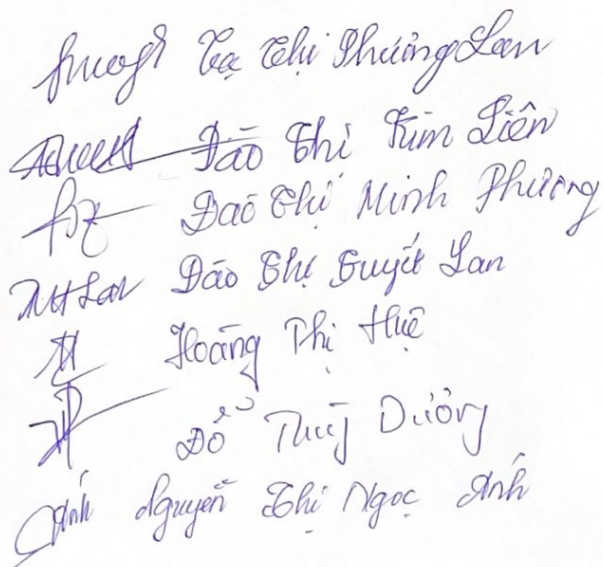 Tạ Thị Phương Lan
Đào Thị Kim Liên
Đào Thị Minh Phương
Đào Thị Tuyết Lan
Hoàng Thị Huệ
Đỗ Thùy Dương
Ánh Nguyễn Thị Ngọc Ánh